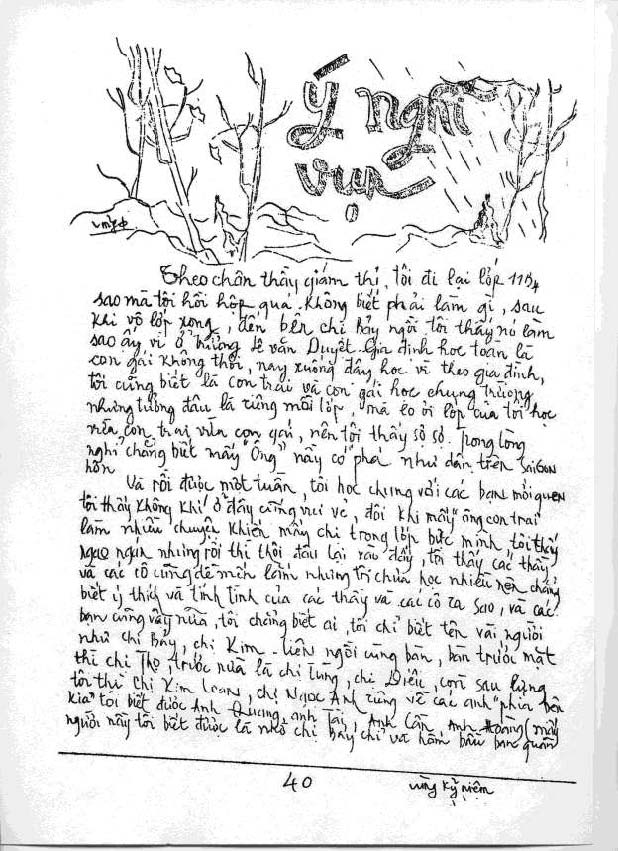 Ý nghĩ
vụn
Theo chân thầy giám thị, tôi đi lại lớp 11B4
sao mà tôi hồi hộp quá. Không biết phải làm gì, sau
khi vô lớp xong, đến bên chị Bảy ngồi tôi thấy nó làm
sao ấy vì ở trường Lê văn Duyệt Gia định học toàn là
con gái không thôi, nay xuống đây học vì theo gia đình,
tôi cũng biết là con trai và con gái học chung trường
nhưng tưởng đâu là riêng mỗi lớp, mà lo ơi lớp của tôi học
vừa con trai vừa con gái, nên tôi thấy sờ sợ. Trong lòng
nghĩ chẳng biết mấy "Ông" này có phá như dân trên SAIGON
hôn
Và rồi được một tuần, tôi học chung với các bạn mới quen
tôi thấy không khí ở đây cũng vui vẻ, đôi khi mấy "ông con trai
làm nhiều chuyện khiến mấy chị trong lớp bức mình, tôi thấy
ngao ngán nhưng rồi thì thôi đâu lại vào đấy, tôi thấy các thầy
và các cô cũng dễ mến lắm nhưng tôi chưa học nhiều nên chẳng
biết ý thích và tính tình của các thầy và các cô ra sao, và các
bạn cũng vậy nữa, tôi chẳng biết ai, tôi chỉ biết tên vài người
như chị Bảy, chị Kim-Liên ngồi cùng bàn, bàn trước mặt
thì chị Thọ trước nữa là chị Tùng, chị Diệu, còn sau lưng
tôi thì chị Kim Loan, chị Ngọc Anh riêng về các anh "phía bên
kia" tôi biết được Anh Quang, anh Tài, Anh Cần, Anh Hoàng (mấy
người này tôi biết được là nhờ chị Bảy chỉ và hôm bầu ban quản
40
vùng kỷ niệm